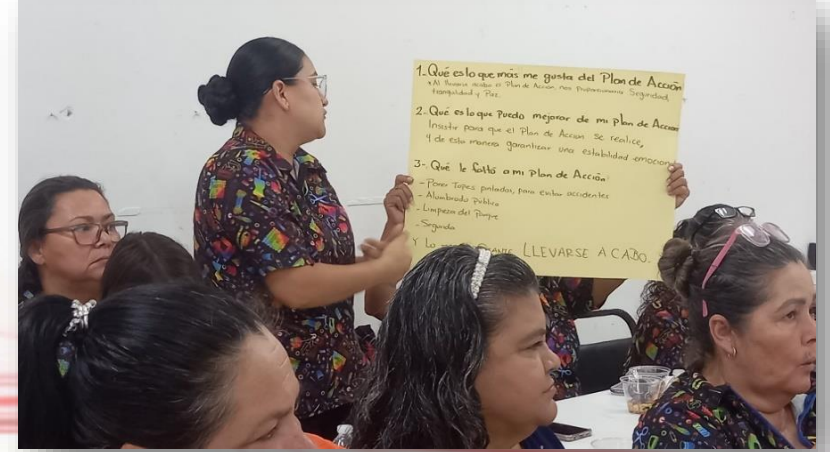 1.- Qué es lo que más me gusta del Plan de Acción
* Al llevarse acabo el Plan de Acción nos proporcionaria Seguridad,
tranquilidad y Paz.
2.- Qué es lo que Puedo mejorar de mi plan de Accion
Insistir para que el Plan de Accion se realice,
y de esta manera garantizar una estabilidad emocion
3-. Qué le faltó a mi Plan de Acción:
- Poner Topes pintados, para evitar accidentes
- Alumbrado Público
- Limpieza del Parque
- Segurida
Y Lo LLEVARSE A CABO.